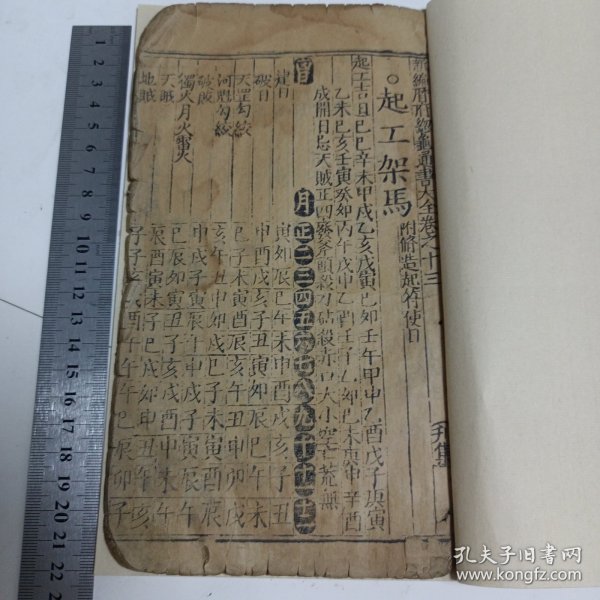 通書大全卷之十三
○起工架馬 附修造起符使日
起工吉日己巳辛未甲戌乙亥戊寅己卯壬午甲申乙酉戊子庚寅
乙未己亥壬寅癸卯丙午戊申乙酉壬子乙卯己未庚申辛酉
成開日忌天賊正四廢斧頭殺刀砧殺赤口大小空亡荒無
月 正二三四五六七八九十十一十二
建日 寅卯辰巳午未申酉戌亥子丑
破日 申酉戌亥子丑寅卯辰巳午未
天罡勾絞 巳子未寅酉辰亥午丑申卯戌
河魁勾絞 亥午丑申卯戌巳子未寅酉辰
破敗 申戌子寅辰午申戌子寅辰午
獨火月火雷火 巳辰卯寅丑子亥戌酉申未午
天賊 辰酉寅未子巳戌卯申丑午亥
地賊
1 2 3 4 5 6 7 8 9 10 11 12 13 14 15 16 17 18 19 20 21 22
孔夫子旧书网
www.kongfz.com